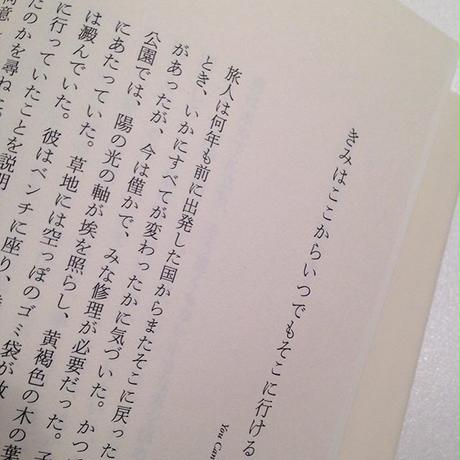 きみはここからいつでもそこに行ける
You Can
旅人は何年も前に出発した国からまたそこに戻った
とき、いかにすべてが変わったかに気づいた。かつ
があったが、今は僅かで、みな修理が必要だった。子
公園では、陽の光の軸が埃を照らし、黄褐色の木の葉
にあたっていた。草地には空っぽのゴミ袋が散
は澱んでいた。彼はベンチに座り、
に行っていたことを説明
たのかを尋ね
何意